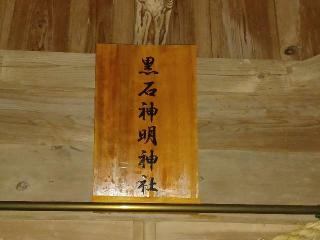 黒石神明神社